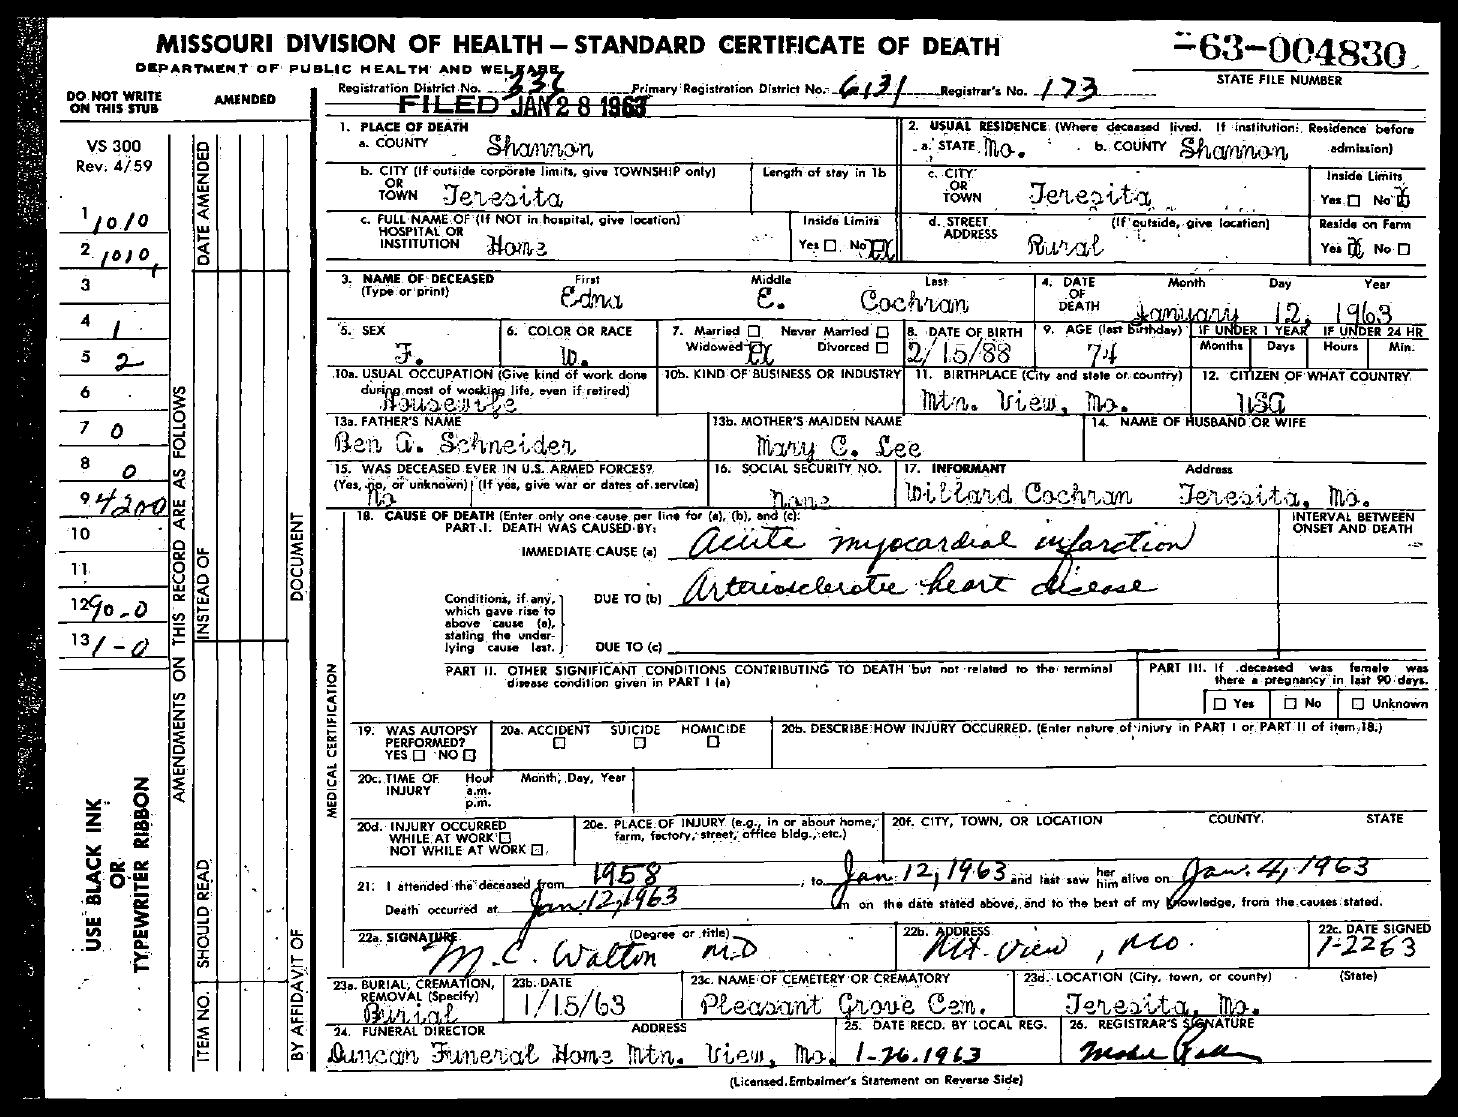 MISSOURI DIVISION OF HEALTH — STANDARD CERTIFICATE OF DEATH
-63-004830
DEPARTMENT OF PUBLIC HEALTH AND WELFARE
STATE FILE NUMBER
DO NOT WRITE ON THIS STUB
AMENDED
Registration District No. 336 Primary Registration District No. 6131 Registrar's No. 173
FILED JAN 28 1963
VS 300
Rev. 4/59
1 1010
2 1010
3
4 1
5 2
6
7 0
8 0
9 4200
10
11
12 90-0
13 1-0
USE BLACK INK
OR
TYPEWRITER RIBBON
AMENDMENTS ON THIS RECORD ARE AS FOLLOWS
DATE AMENDED
INSTEAD OF
DOCUMENT
SHOULD READ
ITEM NO.
BY AFFIDAVIT OF
1. PLACE OF DEATH
a. COUNTY Shannon
b. CITY (If outside corporate limits, give TOWNSHIP only)
OR
TOWN Teresita
Length of stay in 1b
c. FULL NAME OF (If NOT in hospital, give location)
HOSPITAL OR
INSTITUTION Home
Inside Limits
Yes ☐ No ☒
2. USUAL RESIDENCE (Where deceased lived. If institution: Residence before admission)
a. STATE Mo. b. COUNTY Shannon
c. CITY
OR
TOWN Teresita
Inside Limits
Yes ☐ No ☒
d. STREET ADDRESS (If outside, give location)
Rural
Reside on Farm
Yes ☒ No ☐
3. NAME OF DECEASED
(Type or print)
First Middle Last
Edna E. Cochran
4. DATE OF DEATH
Month Day Year
January 12, 1963
5. SEX
F.
6. COLOR OR RACE
W.
7. Married ☐ Never Married ☐
Widowed ☒ Divorced ☐
8. DATE OF BIRTH
2/15/88
9. AGE (last birthday)
74
IF UNDER 1 YEAR
Months Days
IF UNDER 24 HR
Hours Min.
10a. USUAL OCCUPATION (Give kind of work done
during most of working life, even if retired)
Housewife
10b. KIND OF BUSINESS OR INDUSTRY
11. BIRTHPLACE (City and state or country)
Mtn. View, Mo.
12. CITIZEN OF WHAT COUNTRY
USA
13a. FATHER'S NAME
Ben A. Schneider
13b. MOTHER'S MAIDEN NAME
Mary C. Lee
14. NAME OF HUSBAND OR WIFE
15. WAS DECEASED EVER IN U.S. ARMED FORCES?
(Yes, no, or unknown) (If yes, give war or dates of service)
No
16. SOCIAL SECURITY NO.
None
17. INFORMANT Address
Willard Cochran Teresita, Mo.
MEDICAL CERTIFICATION
18. CAUSE OF DEATH (Enter only one cause per line for (a), (b), and (c):
PART I. DEATH WAS CAUSED BY:
INTERVAL BETWEEN ONSET AND DEATH
IMMEDIATE CAUSE (a) Acute myocardial infarction
Conditions, if any, which gave rise to above cause (a), stating the underlying cause last.
DUE TO (b) Arteriosclerotic heart disease
DUE TO (c)
PART II. OTHER SIGNIFICANT CONDITIONS CONTRIBUTING TO DEATH but not related to the terminal
disease condition given in PART I (a)
PART III. If deceased was female was
there a pregnancy in last 90 days.
☐ Yes ☐ No ☐ Unknown
19. WAS AUTOPSY
PERFORMED?
YES ☐ NO ☐
20a. ACCIDENT SUICIDE HOMICIDE
☐ ☐ ☐
20b. DESCRIBE HOW INJURY OCCURRED. (Enter nature of injury in PART I or PART II of item 18.)
20c. TIME OF INJURY
Hour Month, Day, Year
a.m.
p.m.
20d. INJURY OCCURRED
WHILE AT WORK ☐
NOT WHILE AT WORK ☐
20e. PLACE OF INJURY (e.g., in or about home,
farm, factory, street, office bldg., etc.)
20f. CITY, TOWN, OR LOCATION COUNTY STATE
21. I attended the deceased from 1958, to Jan 12, 1963 and last saw her him alive on Jan. 4, 1963
Death occurred at Jan 12, 1963 m on the date stated above, and to the best of my knowledge, from the causes stated.
22a. SIGNATURE (Degree or title)
M. C. Walton MD
22b. ADDRESS
Mt. View, Mo.
22c. DATE SIGNED
1-22 63
23a. BURIAL, CREMATION,
REMOVAL (Specify)
Burial
23b. DATE
1/15/63
23c. NAME OF CEMETERY OR CREMATORY
Pleasant Grove Cem.
23d. LOCATION (City, town, or county) (State)
Teresita, Mo.
24. FUNERAL DIRECTOR ADDRESS
Duncan Funeral Home Mtn. View, Mo.
25. DATE RECD. BY LOCAL REG.
1-26-1963
26. REGISTRAR'S SIGNATURE
(Licensed Embalmer's Statement on Reverse Side)